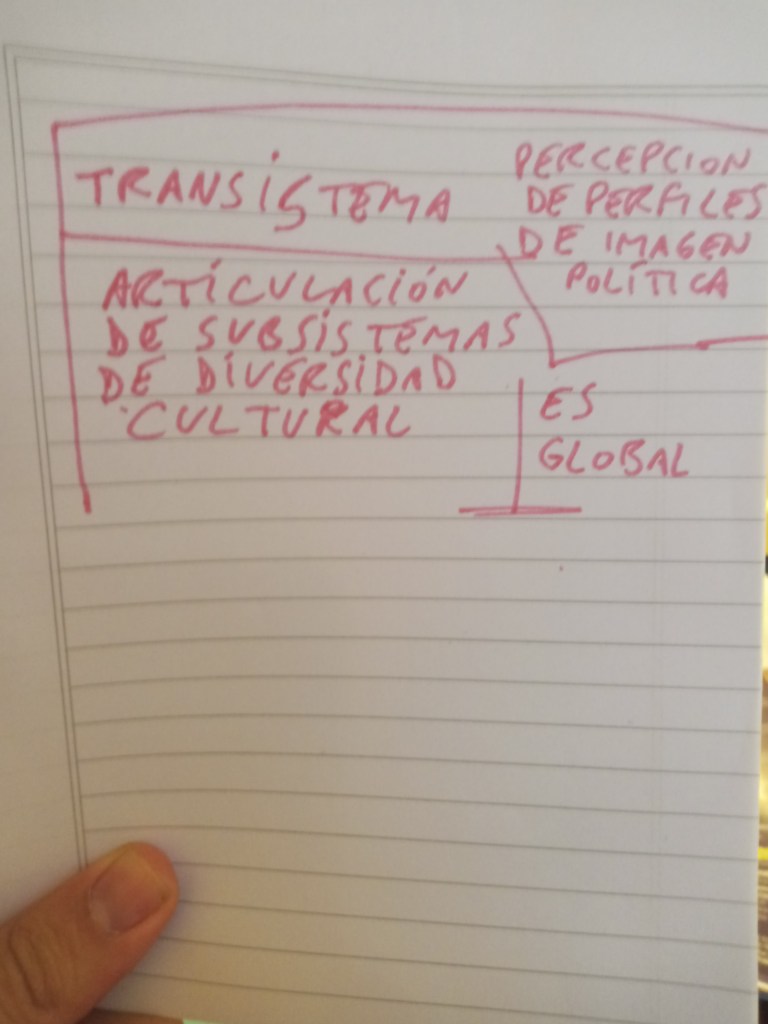 TRANSISTEMA
PERCEPCION
DE PERFILES
DE IMAGEN
POLÍTICA
ARTICULACIÓN
DE SUBSISTEMAS
DE DIVERSIDAD
CULTURAL
ES
GLOBAL